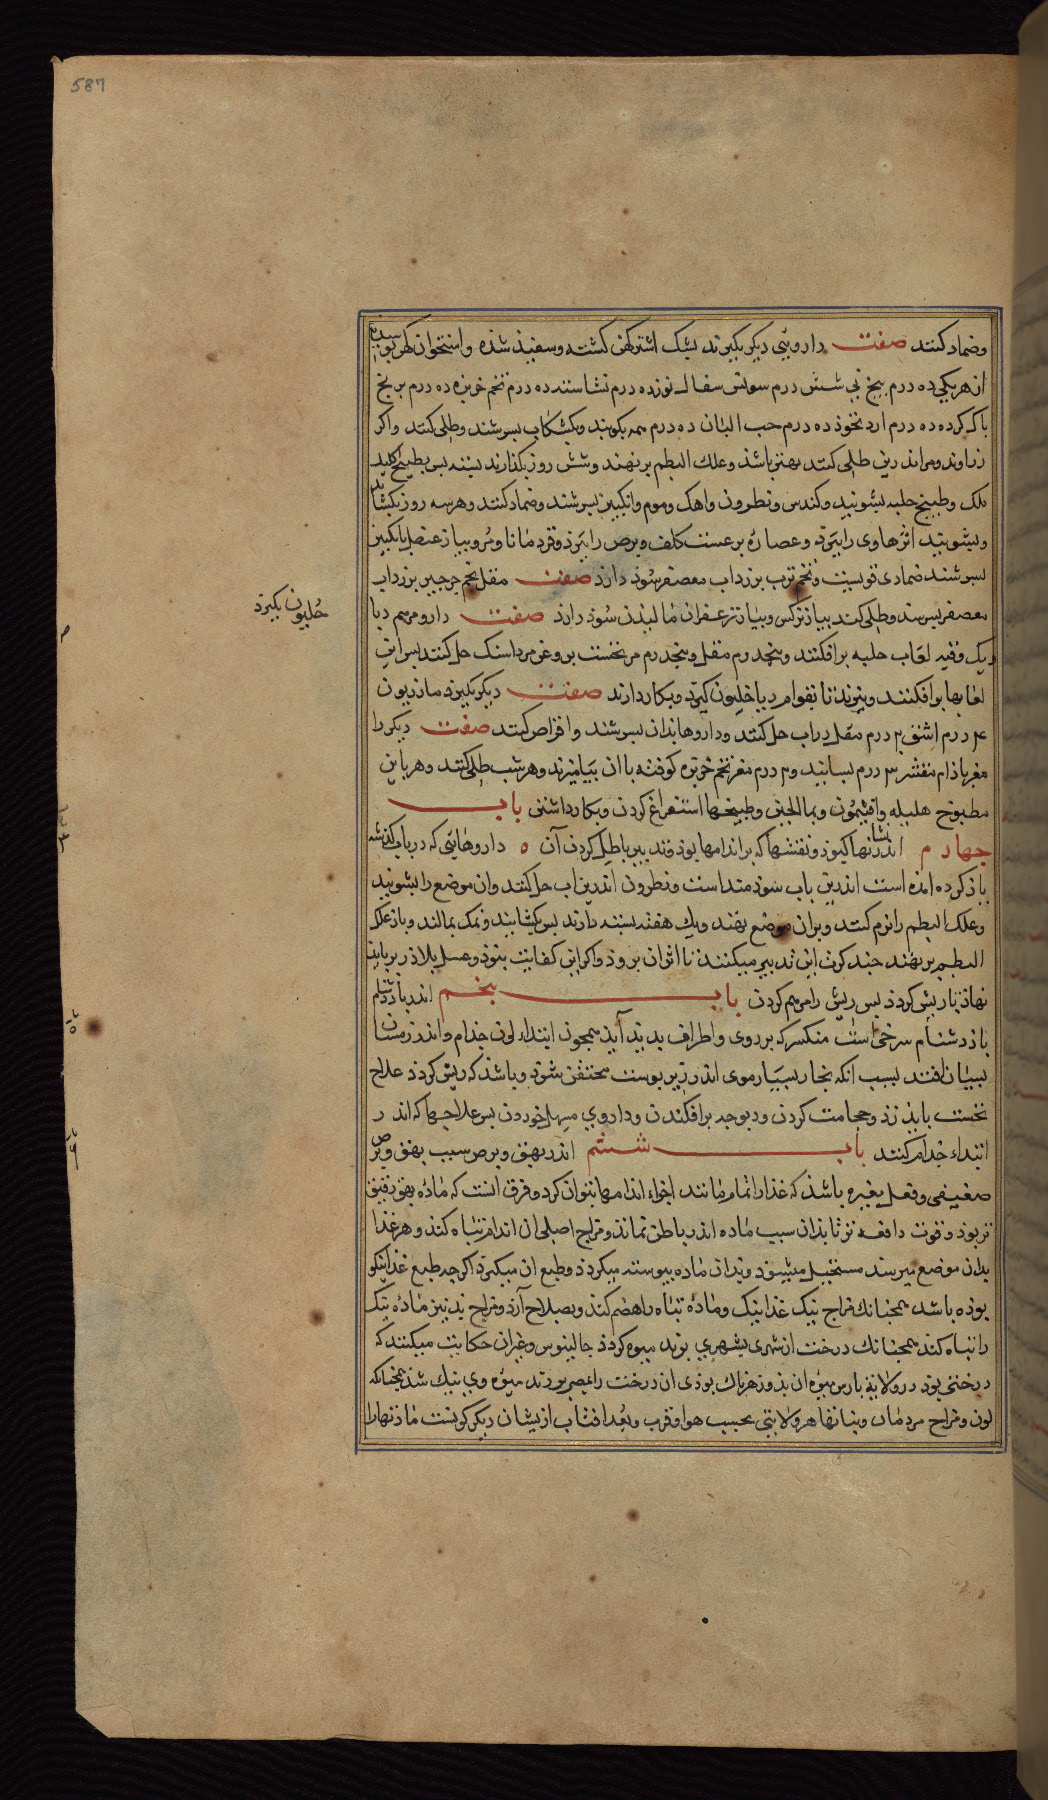 587
وضماد کنند صفت داروئی دیکر بکیرند پشک اشتر کهن کشته وسفید شده واستخوان کهن پوسیده
از هر یکی ده درم بیخ نی شش درم سفال نو ده درم نشاسته ده درم تخم خربزه ده درم برنج
پاک کرده ده درم ارد نخود ده درم حب البان ده درم همه بکوبند وبکشکاب بسرشند وطلی کنند واکر
زراوند ومر اندرین طلی کنند بهتر باشد وعلک البطم بر نهند وشش روز بکذارند بسته پس بطبیخ اکلیل
ملک وطبیخ حلبه بشویند وکندس ونطرون واهک وموم وانکبین بسرشند وضماد کنند وهر سه روز بکشایند
وبشویند اثرهاء وی را ببرد وعصاره کلف وبرص را ببرد وقردمانا ومر وپیاز عنصل بانکبین
بسرشند ضمادی قویست وتخم ترب بزرداب معصفر سود دارد صفت مقل تخم جرجیر بزرداب
معصفر بسرشند وطلی کنند پیاز نرکس وپیاز تر زعفران مالیدن سود دارد صفت دارو مرهم دیا
یک وقیه لعاب حلبه برافکنند وپنجدرم مقل وپنجدرم مر نخست بروغن مرداسنک حل کنند پس این
لعابها برافکنند وبپزند تا بقوام دیاخلیون کیرد وبکار دارند صفت دیکر بکیرد مازریون
۴ درم اشق ۲ درم مقل دراب حل کنند وداروها بدان بسرشند واقراص کنند صفت دیکر را
مغز بادام مقشر ۳ درم بسایند و۲ درم مغز تخم خربزه کوفته با ان بیامیزند وهر شب طلی کنند وهر
مطبوخ هلیله وافتیمون وبماالجبن وطبیخها استفراغ کردن وبکار داشتن باب
چهارم اندر نشانها کبود ونقشها که براندامها بود وتدبیر باطل کردن آن ه داروهائی که در باب کذشته
یاد کرده امده است اندرین باب سودمند است ونطرون اندرین اب حل کنند وان موضع را بشویند
وعلک البطم را نرم کنند وبران موضع نهند ویک هفته بسته دارند پس بکشایند ونمک بمالند وباز علک
البطم بر نهند چند کرت این تدبیر میکنند تا اثر ان برود واکر این کفایت نبود وعسل بلاذر بر باید
نهاد تا ریش کردد پس ریش را مرهم کردن باب پنجم اندر بادشنام
بادشنام سرخی است منکر که بر روی واطراف پدید آید همچون ابتداء لون جذام واندر زمستان
بسیار افتد بسبب انکه بخار بسیار اندر زیر پوست محتقن شود وباشد که ریش کردد علاج
نخست باید زد وحجامت کردن ودیوچه برافکندن وداروی مسهل خوردن پس علاجها که اندر
ابتداء جذام کنند باب ششم اندر بهق وبرص سبب بهق وبرص
ضعیفی وفعل مغیره باشد که غذا را تمام مانند اجزاء اندامها نتوان کرد وفرق انست که ماده بهق رقیق
تر بود وقوت دافعه تر تا بدان سبب ماده اندر باطن نماند ومزاج اصلی ان اندام تباه کند وهر غذا
بدان موضع میرسد مستحیل میشود وبدان ماده پیوسته میکردد وطبع ان میکیرد اکرچه طبع غذا نیکو
بوده باشد همچنانک مزاج نیک غذا نیک وماده تباه را هضم کند وبصلاح آرد ومزاج بد نیز ماده نیک
را تباه کند همچنانک درخت از شهری بشهری برند میوه کردد جالینوس وغیر ان حکایت میکنند که
درختی بود در ولایة پارس میوه ان بد وزهرناک بودی ان درخت را بمصر بردند میوه وی نیک شد همچنانکه
لون ومزاج مردمان ونباتها هر ولایتی بحسب هوا وقرب وبعد افتاب ازیشان دیکر کونست مادتها را
خلیون بکیرد